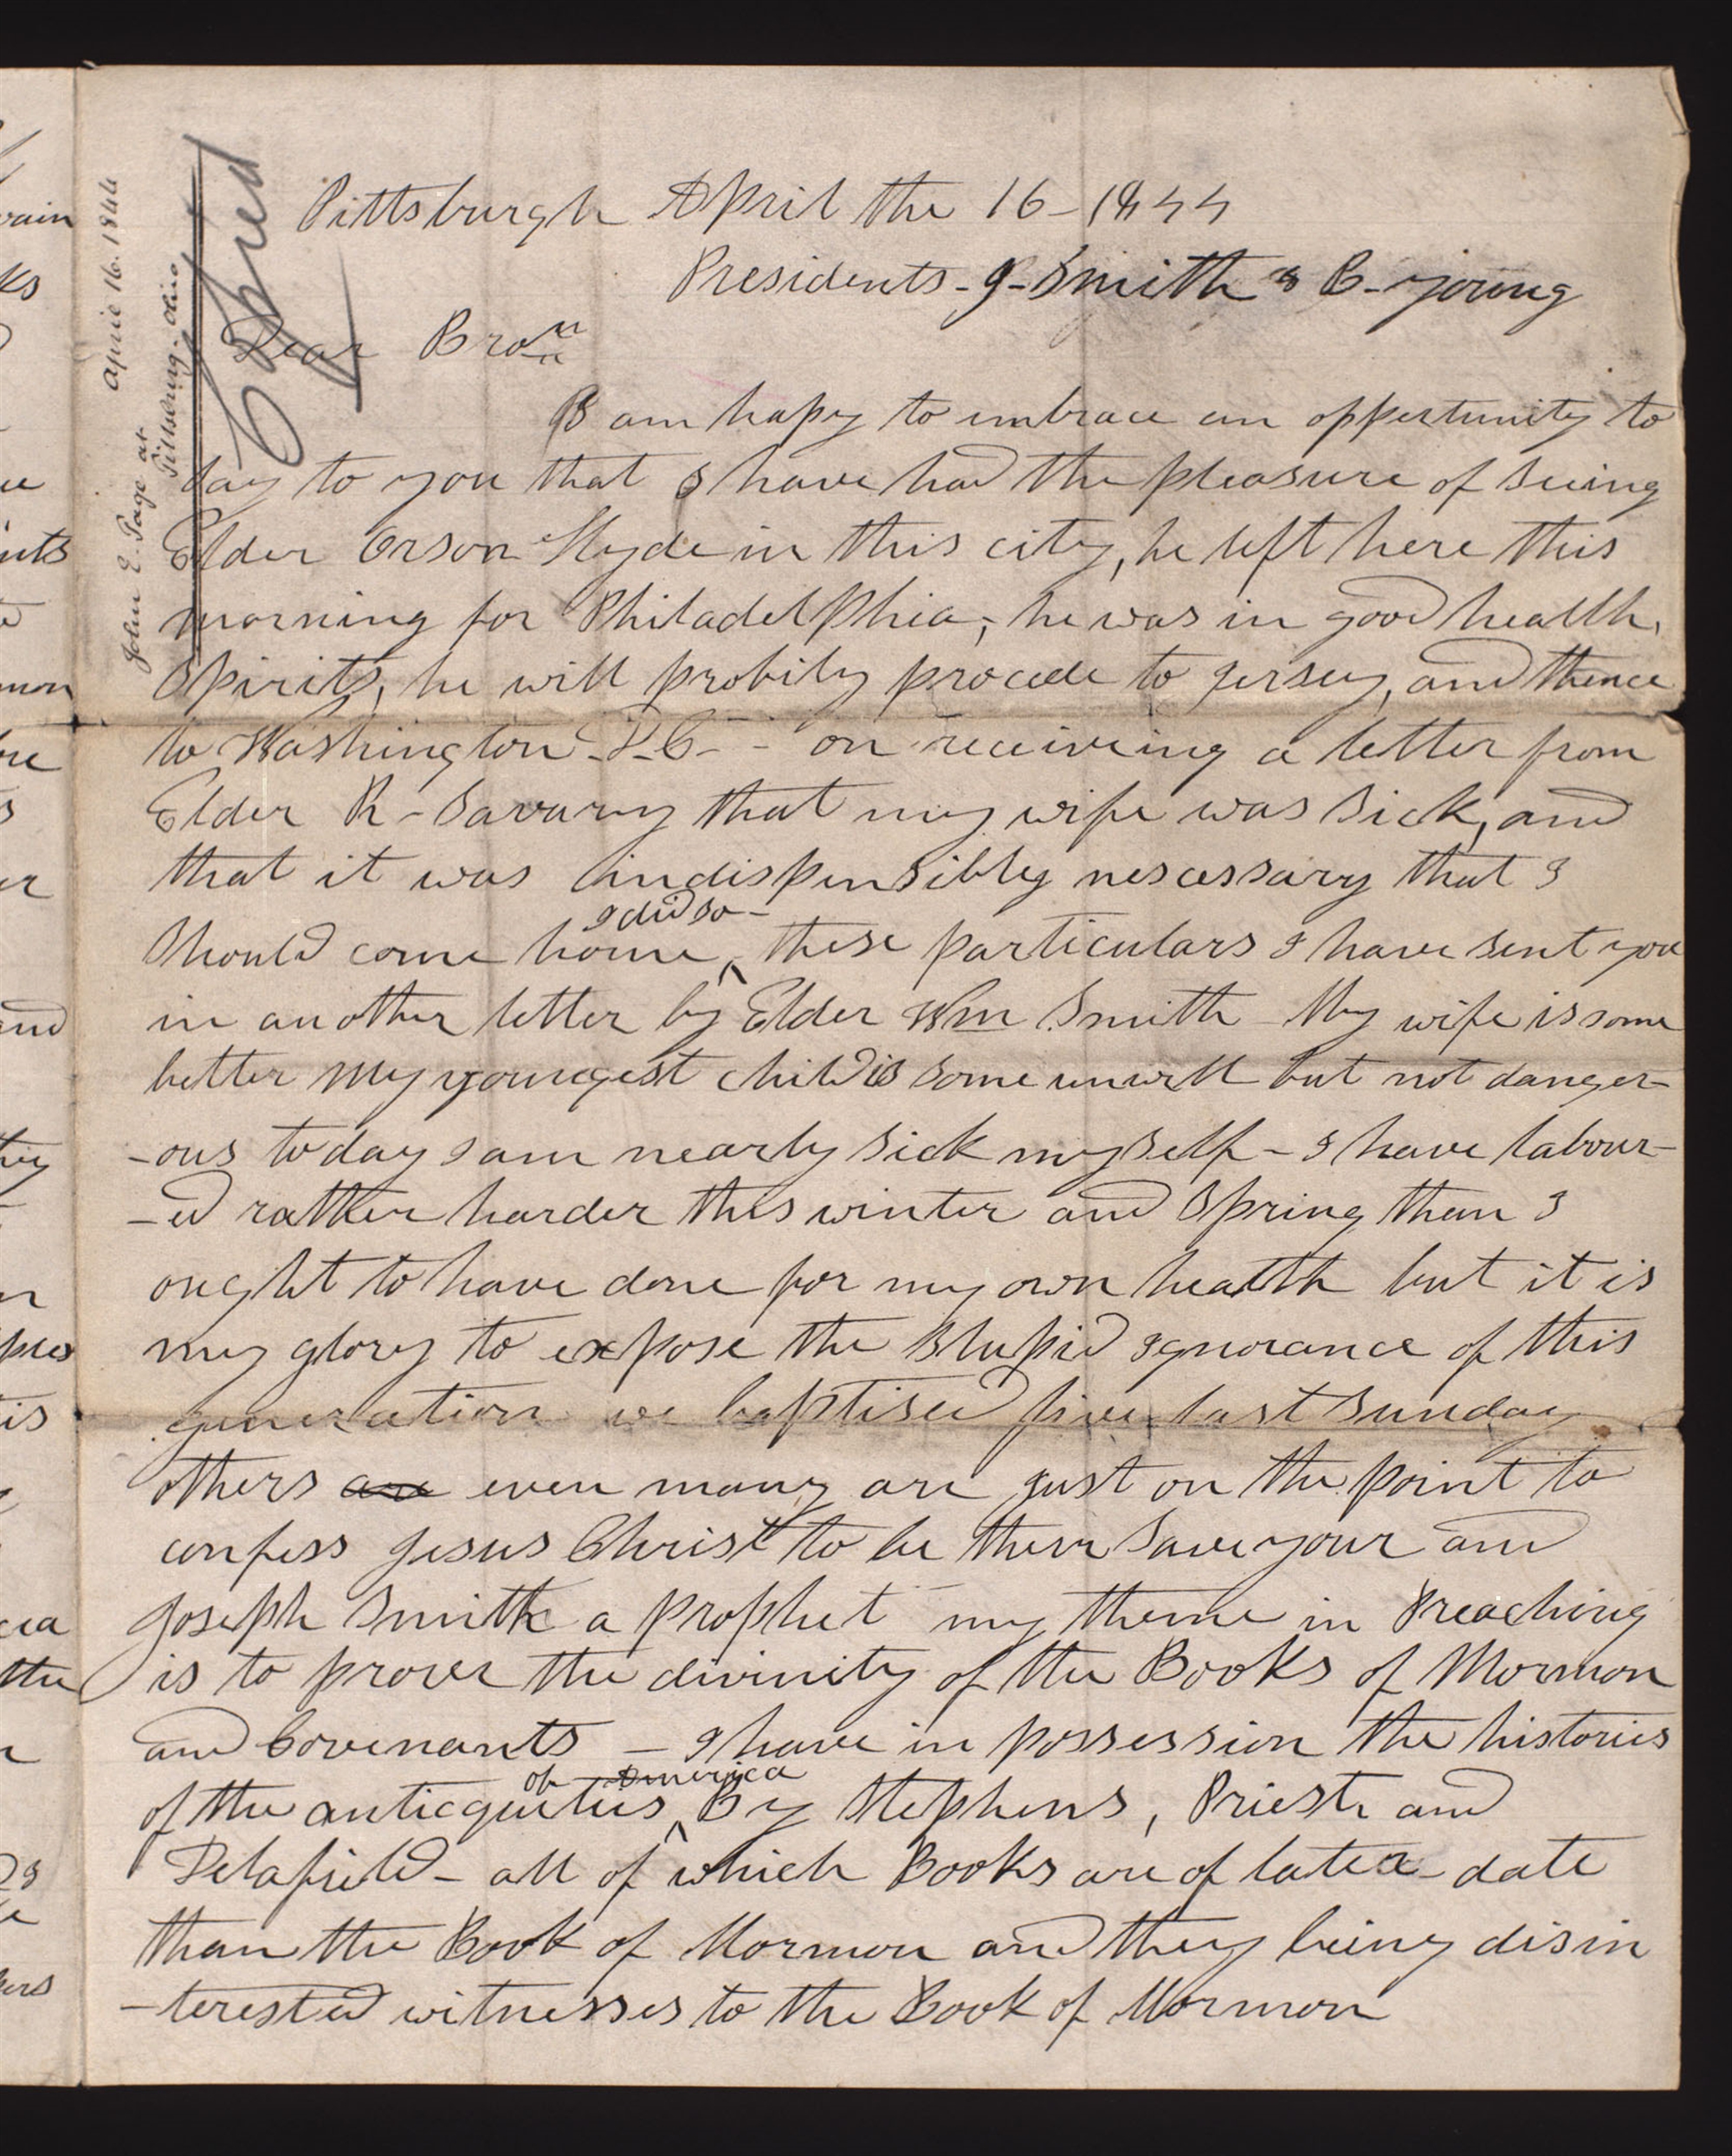 April 16. 1844
John E. Page at
Pittsburg. Ohio
Copied
Pittsburgh April the 16 - 1844
Presidents - J - Smith & B - young
Dear Bron
I am hapy to imbrace an oppertunity to
Say to you that I have had the pleasure of Seeing
Elder Orson Hyde in this city, he left here this
morning for Philadelphia; he was in good health,
Spirits, he will probily procede to Jersey, and thence
to Washington - D. C - - on receiving a letter from
Elder R - Savary that my wife was Sick, and
that it was indispensibly nescessary that I
I did so -
Should come home, ^ these particulars I have sent you
in another letter by Elder Wm Smith - My wife is some
better my youngest child is some unwell but not danger-
-ous today I am nearly Sick myself - I have labour-
-ed rather harder this winter and Spring than I
ought to have done for my own health but it is
my glory to expose the Stupid ignorance of this
generation we baptised five last Sunday
others are even many are just on the point to
confess Jesus Christ to be their Saveyour and
Joseph Smith a prophet my theme in Preaching
is to prove the divinity of the Books of Mormon
and Covenants - I have in possession the histories
of America
of the anticquities ^ By Stephens, Priest and
Delafield - all of which Books are of later date
than the Book of Mormon and they being disin
-terested witnesses to the Book of Mormon